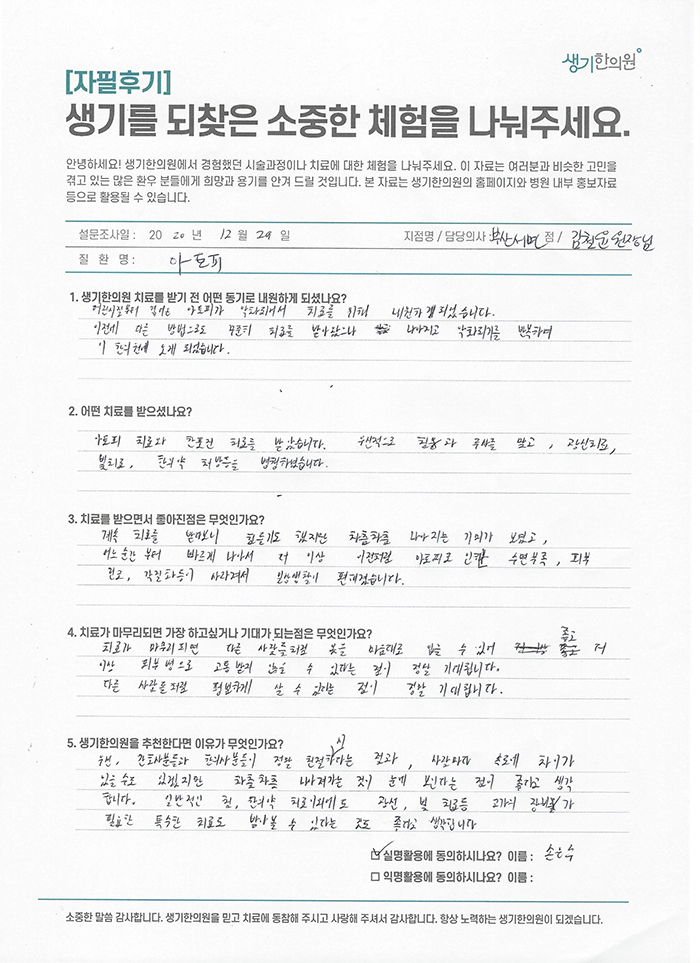 생기한의원
[자필후기]
생기를 되찾은 소중한 체험을 나눠주세요.
안녕하세요! 생기한의원에서 경험했던 시술과정이나 치료에 대한 체험을 나눠주세요. 이 자료는 여러분과 비슷한 고민을
겪고 있는 많은 환우 분들에게 희망과 용기를 안겨 드릴 것입니다. 본 자료는 생기한의원의 홈페이지와 병원 내부 홍보자료
등으로 활용될 수 있습니다.
설문조사일 : 20 20 년 12 월 29 일 지점명 / 담당의사 : 부산서면 점 / 원장님
질 환 명 : 아토피
1. 생기한의원 치료를 받기 전 어떤 동기로 내원하게 되셨나요?
아토피가 악화되어서 치료를 위해 내원하게 되었습니다.
이전에 다른 방법으로도 꾸준히 치료를 받아왔으나 나아지고 악화되기를 반복하여
이 한의원에 오게 되었습니다.
2. 어떤 치료를 받으셨나요?
아토피 치료와 한포진 치료를 받았습니다. 우선적으로 침술과 주사를 맞고, 광선치료,
빛치료, 한의약 처방등을 병행하였습니다.
3. 치료를 받으면서 좋아진점은 무엇인가요?
계속 치료를 받다보니 힘들기도 했지만 차츰차츰 나아지는 기미가 보였고,
어느순간 부터 빠르게 나아서 더 이상 이전처럼 아토피로 인한 수면부족, 피부
건조, 각질화등이 사라져서 일상생활이 편해졌습니다.
4. 치료가 마무리되면 가장 하고싶거나 기대가 되는점은 무엇인가요?
치료가 마무리 되면 다른 사람들처럼 옷을 마음대로 입을 수 있어 좋고 더
이상 피부병으로 고통받지 않을 수 있다는 점이 정말 기대됩니다.
다른 사람들처럼 평범하게 살 수 있다는 점이 정말 기대됩니다.
5. 생기한의원을 추천한다면 이유가 무엇인가요?
우선, 간호사분들과 한의사분들이 정말 친절하시다는 점과, 사람마다 속도에 차이가
있을수도 있겠지만 차츰차츰 나아져가는 것이 눈에 보인다는 점이 좋다고 생각
합니다. 일반적인 침, 한의약 치료이외에도 광선, 빛 치료등 고가의 장비가
필요한 특수한 치료도 받아볼 수 있다는 것도 좋다고 생각합니다
실명활용에 동의하시나요? 이름 : 손은수
익명활용에 동의하시나요? 이름 :
소중한 말씀 감사합니다. 생기한의원을 믿고 치료에 동참해 주시고 사랑해 주셔서 감사합니다. 항상 노력하는 생기한의원이 되겠습니다.